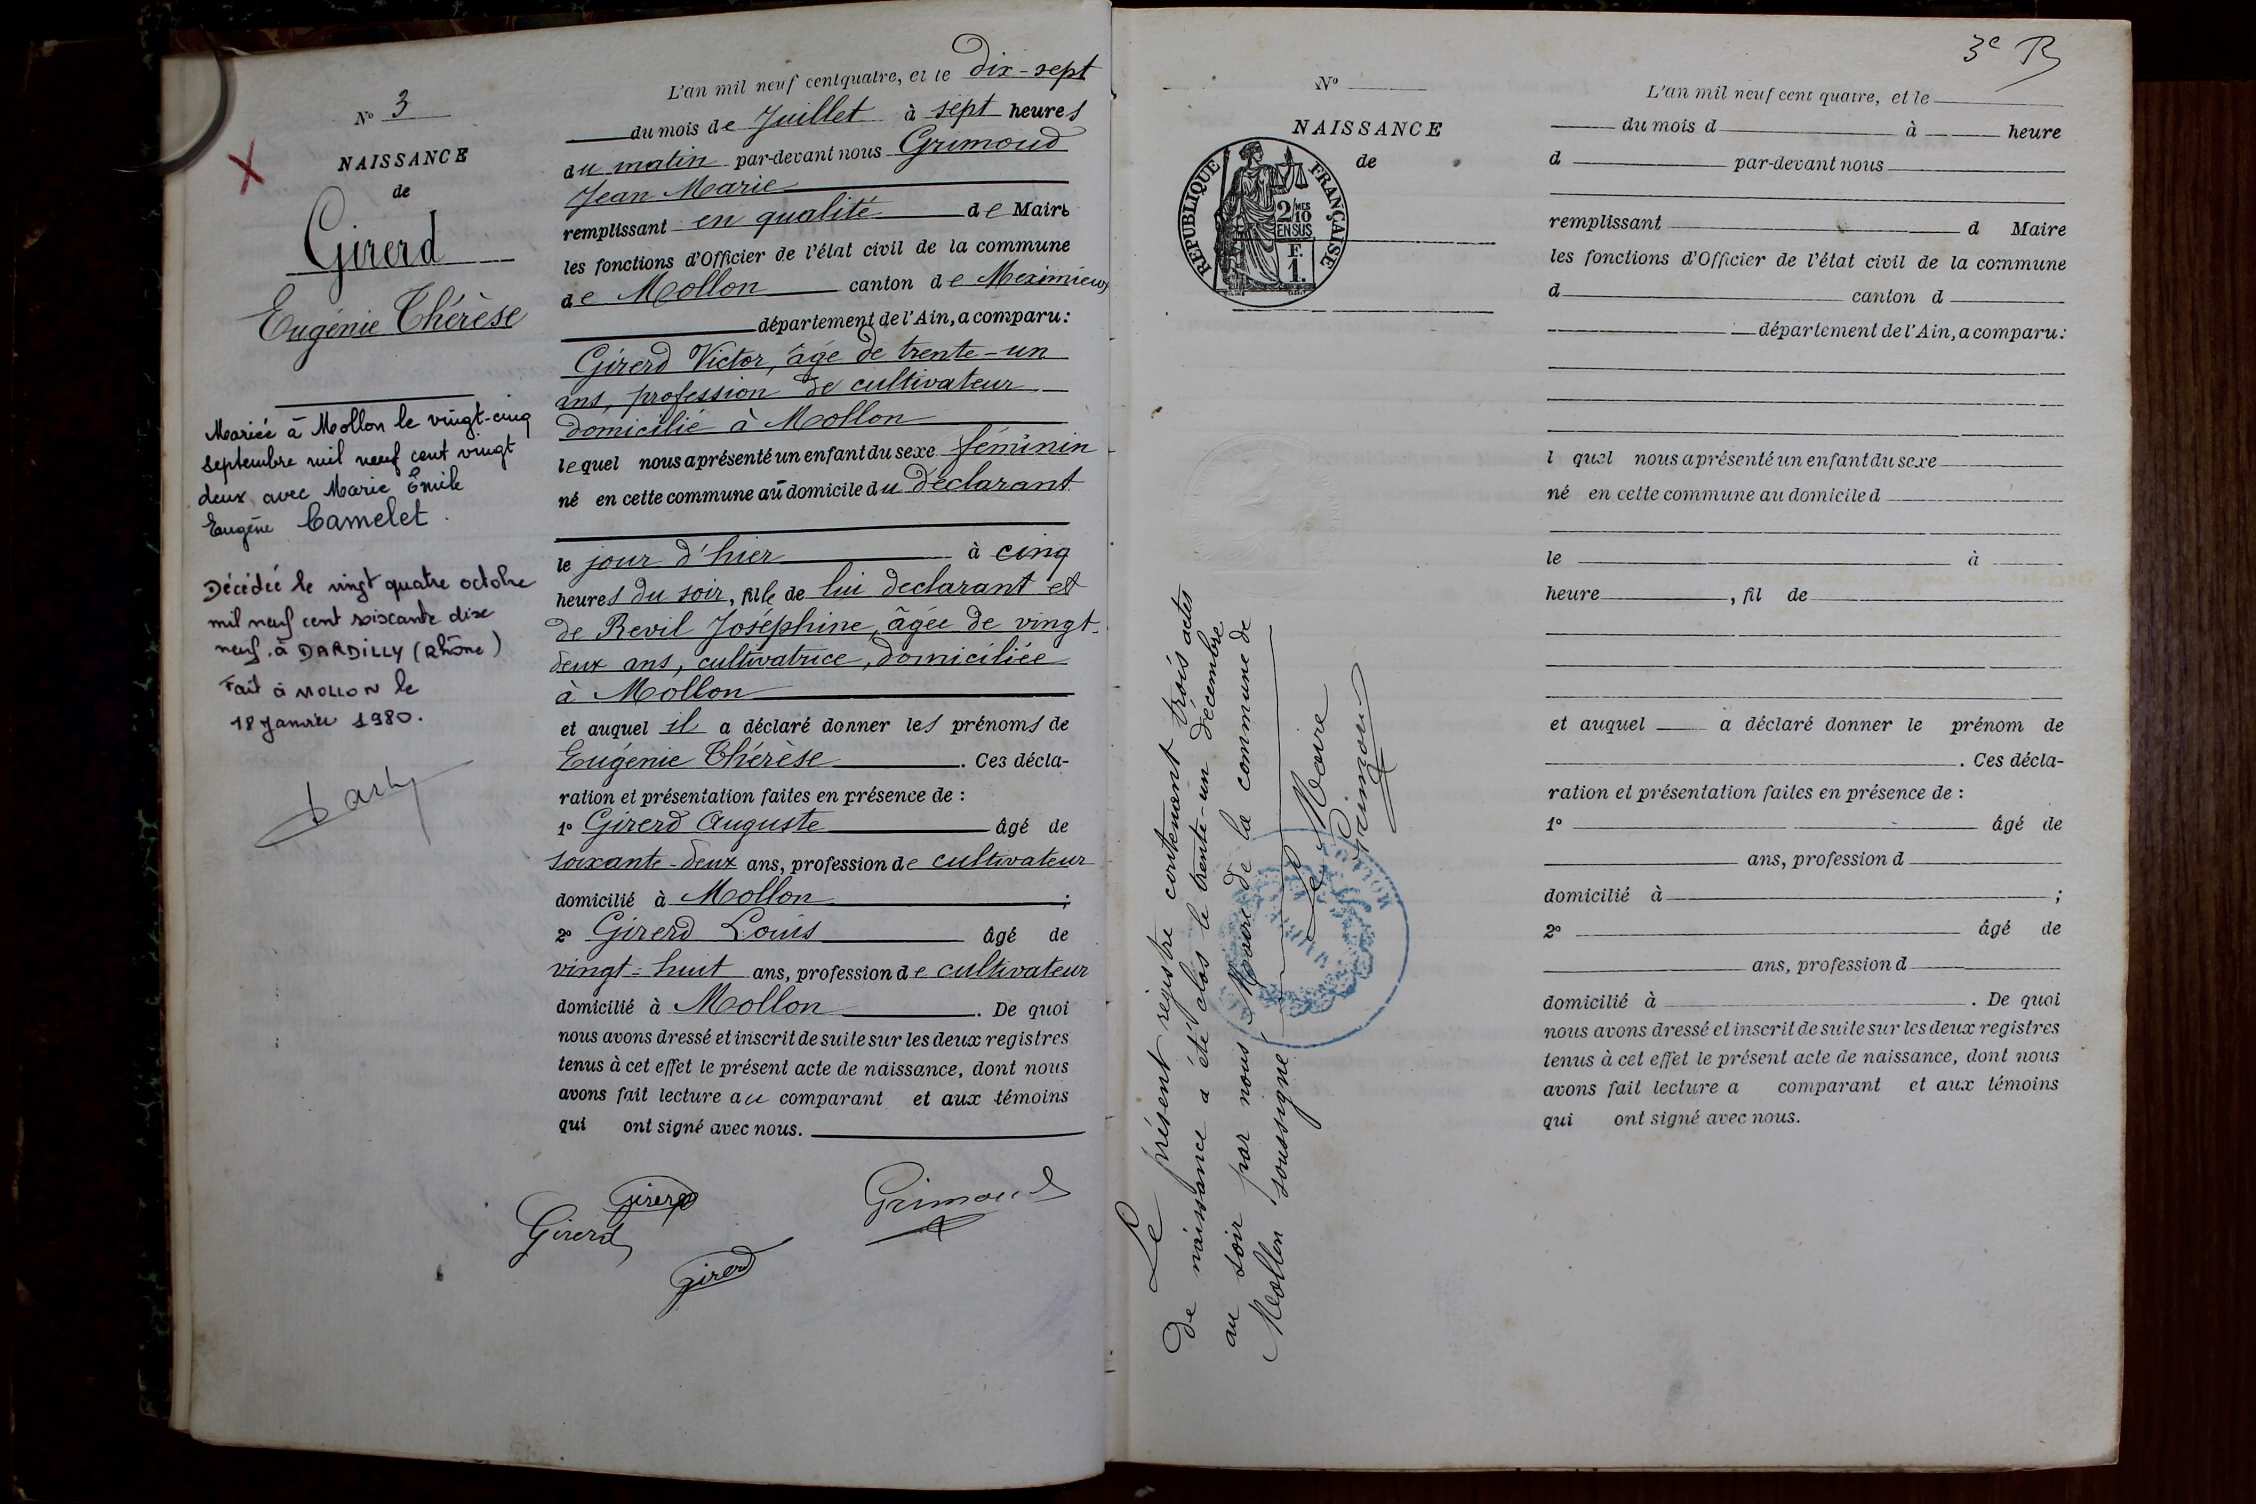 N° 3
NAISSANCE
de
Girerd
Eugénie Thérèse
Mariée à Mollon le vingt-cinq
septembre mil neuf cent vingt
deux avec Marie Émile
Eugène Camelet.
Décédée le vingt quatre octobre
mil neuf cent soixante dix
neuf à DARDILLY (Rhône)
Fait à MOLLON le
18 Janvier 1980.
L'an mil neuf cent quatre, et le dix-sept
du mois de Juillet à sept heures
du matin par-devant nous Grimoud
Jean Marie
remplissant en qualité de Maire
les fonctions d'Officier de l'état civil de la commune
de Mollon canton de Meximieux
département de l'Ain, a comparu :
Girerd Victor, âgé de trente-un
ans, profession de cultivateur
domicilié à Mollon
lequel nous a présenté un enfant du sexe féminin
né en cette commune au domicile du déclarant
le jour d'hier à cinq
heures du soir, fille de lui déclarant et
de Revil Joséphine, âgée de vingt-
deux ans, cultivatrice, domiciliée
à Mollon
et auquel il a déclaré donner les prénoms de
Eugénie Thérèse. Ces décla-
ration et présentation faites en présence de :
1° Girerd Auguste âgé de
soixante-deux ans, profession de cultivateur
domicilié à Mollon ;
2° Girerd Louis âgé de
vingt-huit ans, profession de cultivateur
domicilié à Mollon. De quoi
nous avons dressé et inscrit de suite sur les deux registres
tenus à cet effet le présent acte de naissance, dont nous
avons fait lecture au comparant et aux témoins
qui ont signé avec nous.
Girerd
Girerd
Grimoud
Girerd
3e
N°
NAISSANCE
de
RÉPUBLIQUE FRANÇAISE
2/10 MES
EN SUS
F.
1.
Le présent registre contenant trois actes
de naissance a été clos le trente-un décembre
au soir par nous Maire de la commune de
Mollon soussigné
Le Maire
Grimoud
L'an mil neuf cent quatre, et le
du mois d à heure
d par-devant nous
remplissant d Maire
les fonctions d'Officier de l'état civil de la commune
d canton d
département de l'Ain, a comparu :
l quel nous a présenté un enfant du sexe
né en cette commune au domicile d
le à
heure , fil de
et auquel a déclaré donner le prénom de
. Ces décla-
ration et présentation faites en présence de :
1° âgé de
ans, profession d
domicilié à ;
2° âgé de
ans, profession d
domicilié à . De quoi
nous avons dressé et inscrit de suite sur les deux registres
tenus à cet effet le présent acte de naissance, dont nous
avons fait lecture a comparant et aux témoins
qui ont signé avec nous.